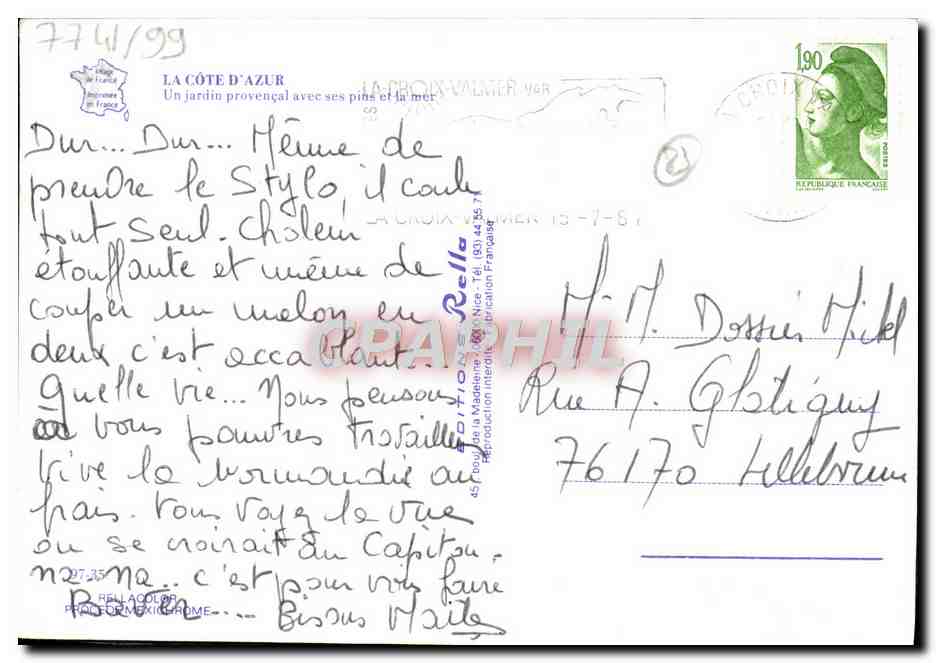 774/99
Image de France
Imprimée en France
LA CÔTE D'AZUR
Un jardin provençal avec ses pins et la mer
LA CROIX-VALMER VAR
CROIX
1,90
POSTES
REPUBLIQUE FRANÇAISE
LA CROIX-VALMER 15-7-87
Dur... Dur... Même de
prendre le Stylo, il coule
tout seul. Chaleur
étouffante et même de
couper un melon en
deux c'est accablant...
Quelle vie... Nous pensons
à vous pauvres travailleurs
Vive la Normandie au
frais. Vous voyez la vue
on se croirait au Capitou.
na-na.. c'est pour vous faire
Baver.... Bisous
M. M. Dossier Michel
Rue A. Glatigny
76170 Lillebonne
EDITIONS Rella
45, boul. de la Madeleine, 06000 Nice - Tél. (93) 44 55 7
Reproduction interdite Fabrication Française
97-35
RELLACOLOR
PROCEDE MEXICHROME
CPAPHIL